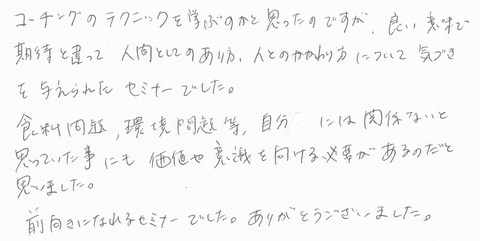 コーチングのテクニックを学ぶのかと思ったのですが、良い意味で
期待と違って 人間としてのあり方、人とのかかわり方について気づき
を与えられたセミナーでした。
食料問題、環境問題等、自分 には関係ないと
思っていた事にも価値や意識を向ける必要があるのだと
思いました。
前向きになれるセミナーでした。ありがとうございました。